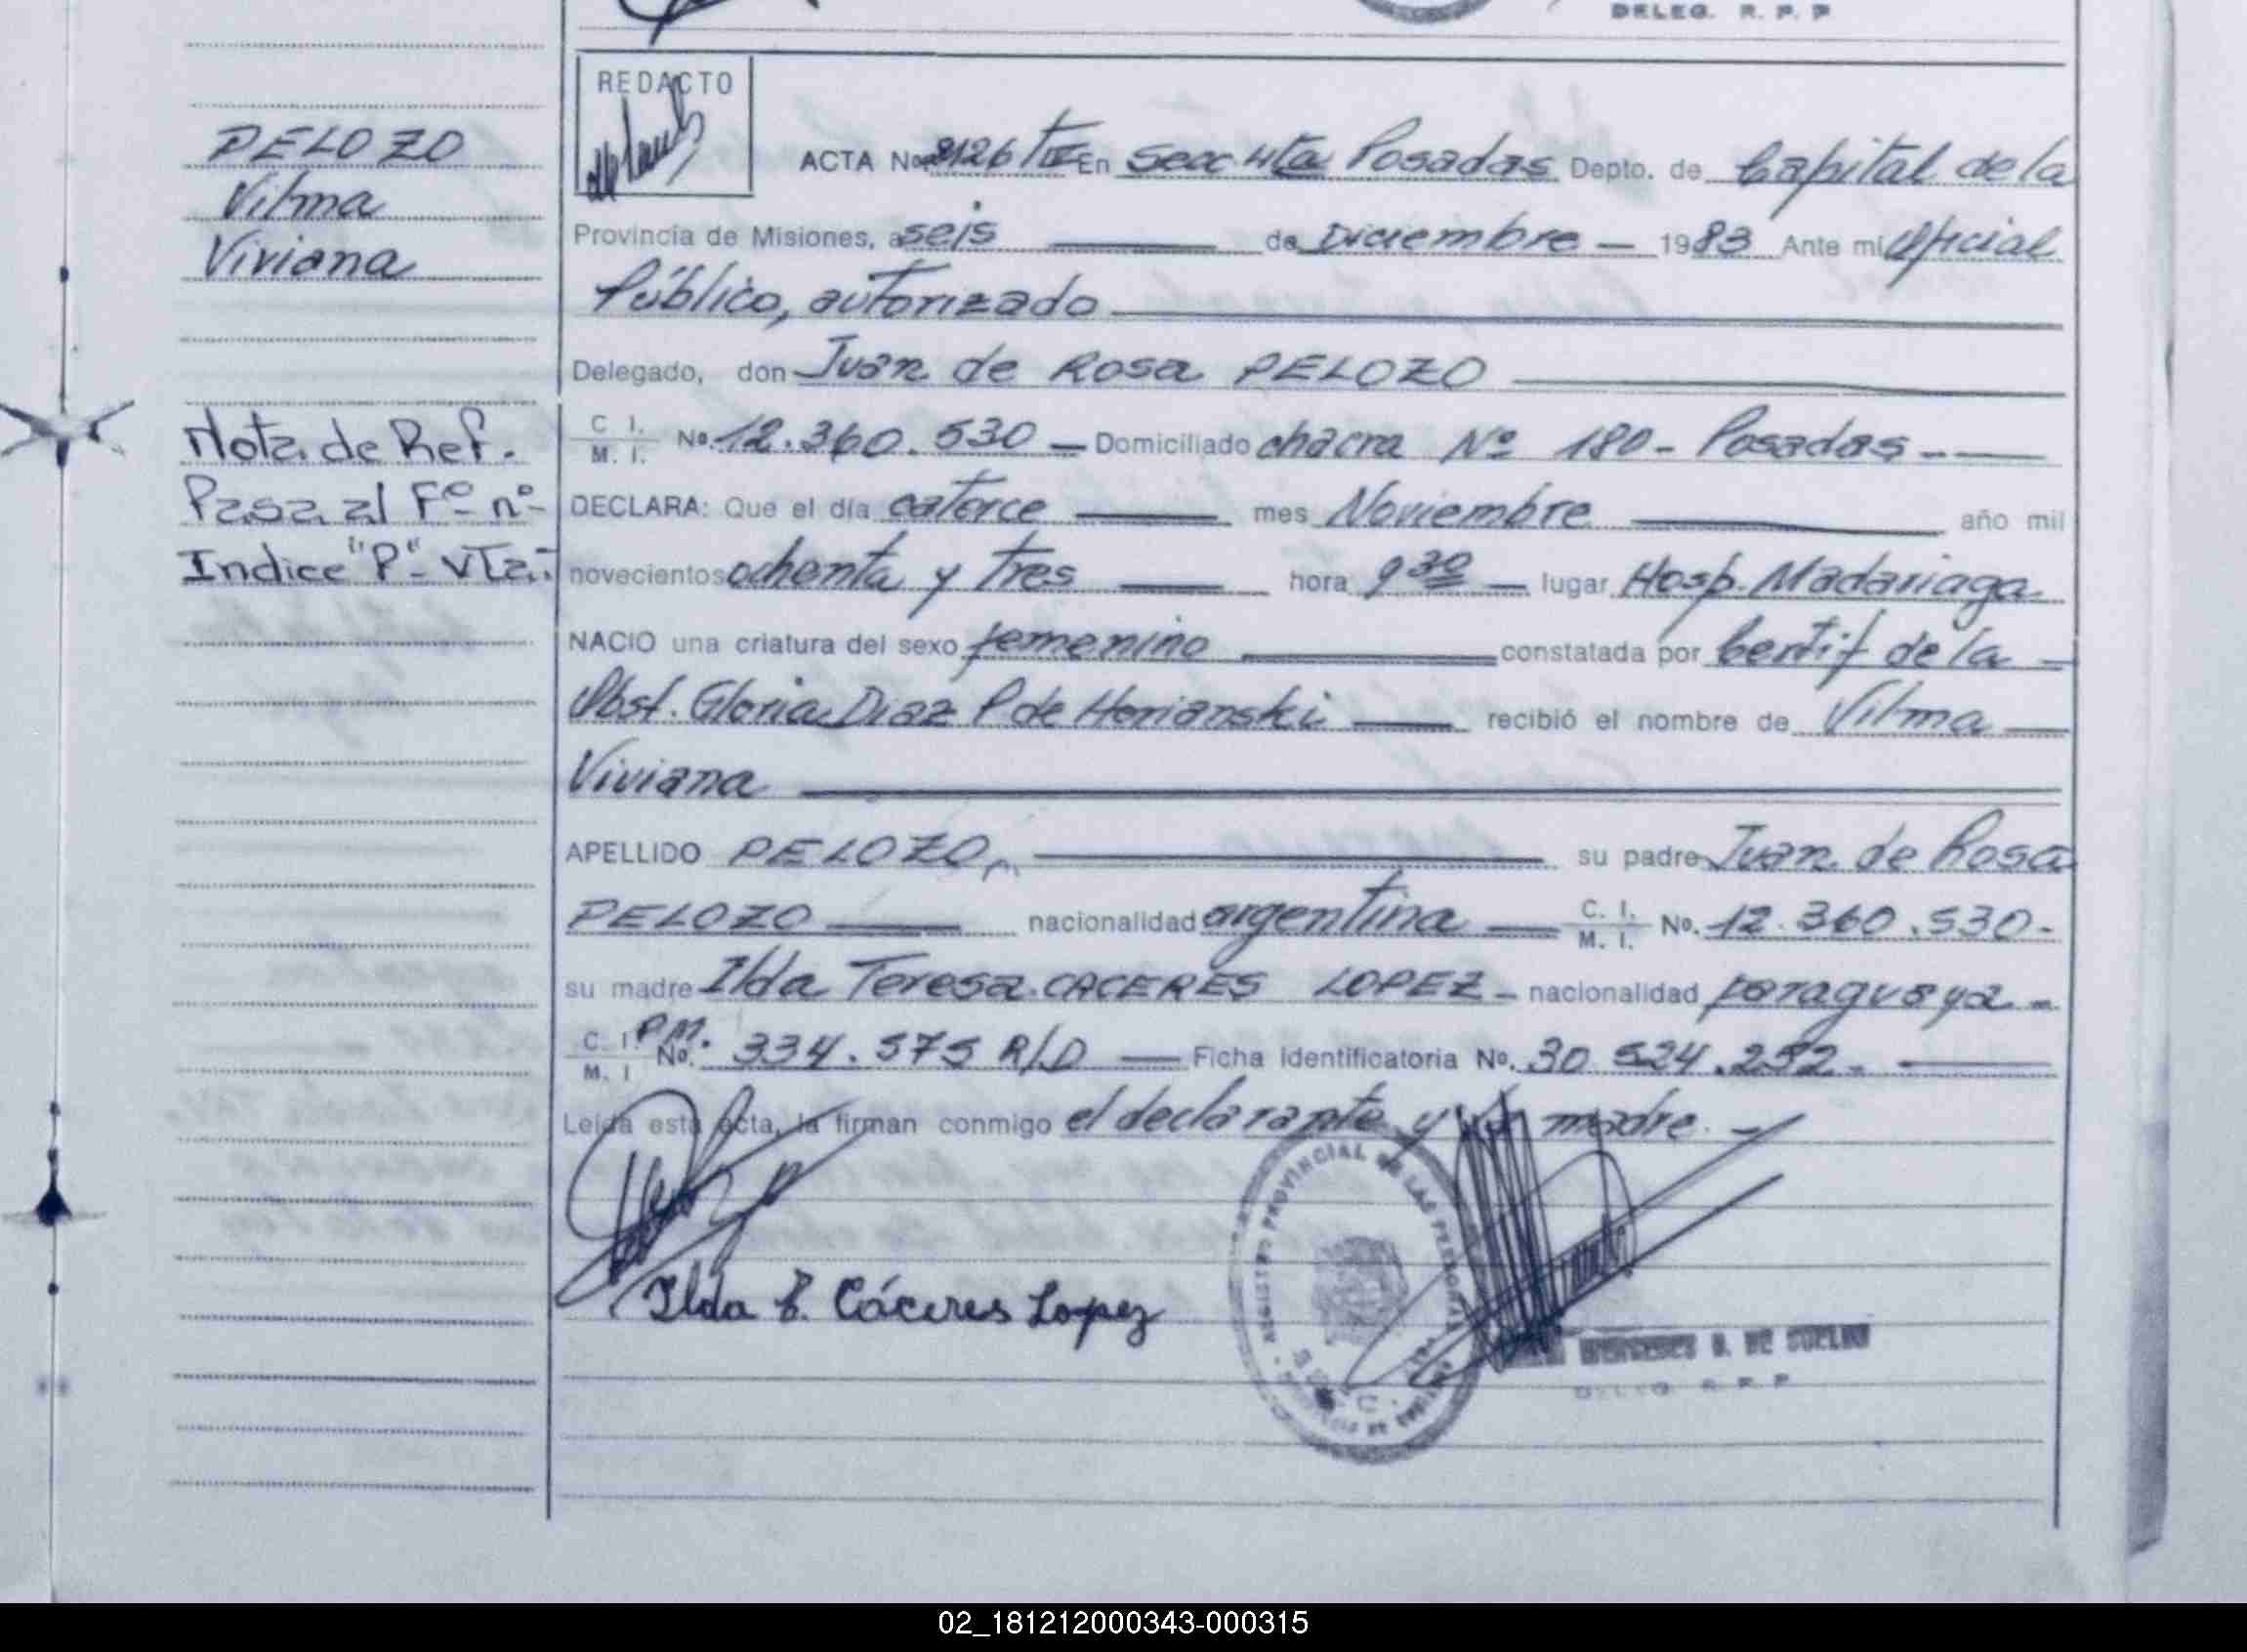 DELEG. R. P. P
REDACTO
PELOZO
Vilma
Viviana
ACTA No 2126 TIV En Secc 4ta Posadas Depto. de Capital de la
Provincia de Misiones, a seis de Diciembre — 1983 Ante mi Oficial
Público, autorizado
Delegado, don Juan de Rosa PELOZO
C. I. M. I. No. 12.360.530 — Domiciliado chacra Nº 180 - Posadas -
Nota de Ref.
Pasa al Fº nº
Indice "P" - vta.
DECLARA: Que el día catorce mes Noviembre año mil
novecientos ochenta y tres hora 9 30 — lugar Hosp. Madariaga
NACIO una criatura del sexo femenino constatada por Certif de la —
Obst. Gloria Diaz P de Horianski recibió el nombre de Vilma
Viviana
APELLIDO PELOZO, su padre Juan de Rosa
PELOZO nacionalidad argentina — C. I. M. I. No. 12.360.530 -
su madre Ilda Teresa CACERES LOPEZ - nacionalidad paraguaya -
C. I. M. I P.M. No. 334.575 R/D — Ficha Identificatoria No. 30 524.252 -
Leída esta acta, la firman conmigo el declarante y la madre. -
Ilda T. Cáceres Lopez
REGISTRO PROVINCIAL DE LAS PERSONAS
MERCEDES DE
DELEG. R. P. P
02_181212000343-000315